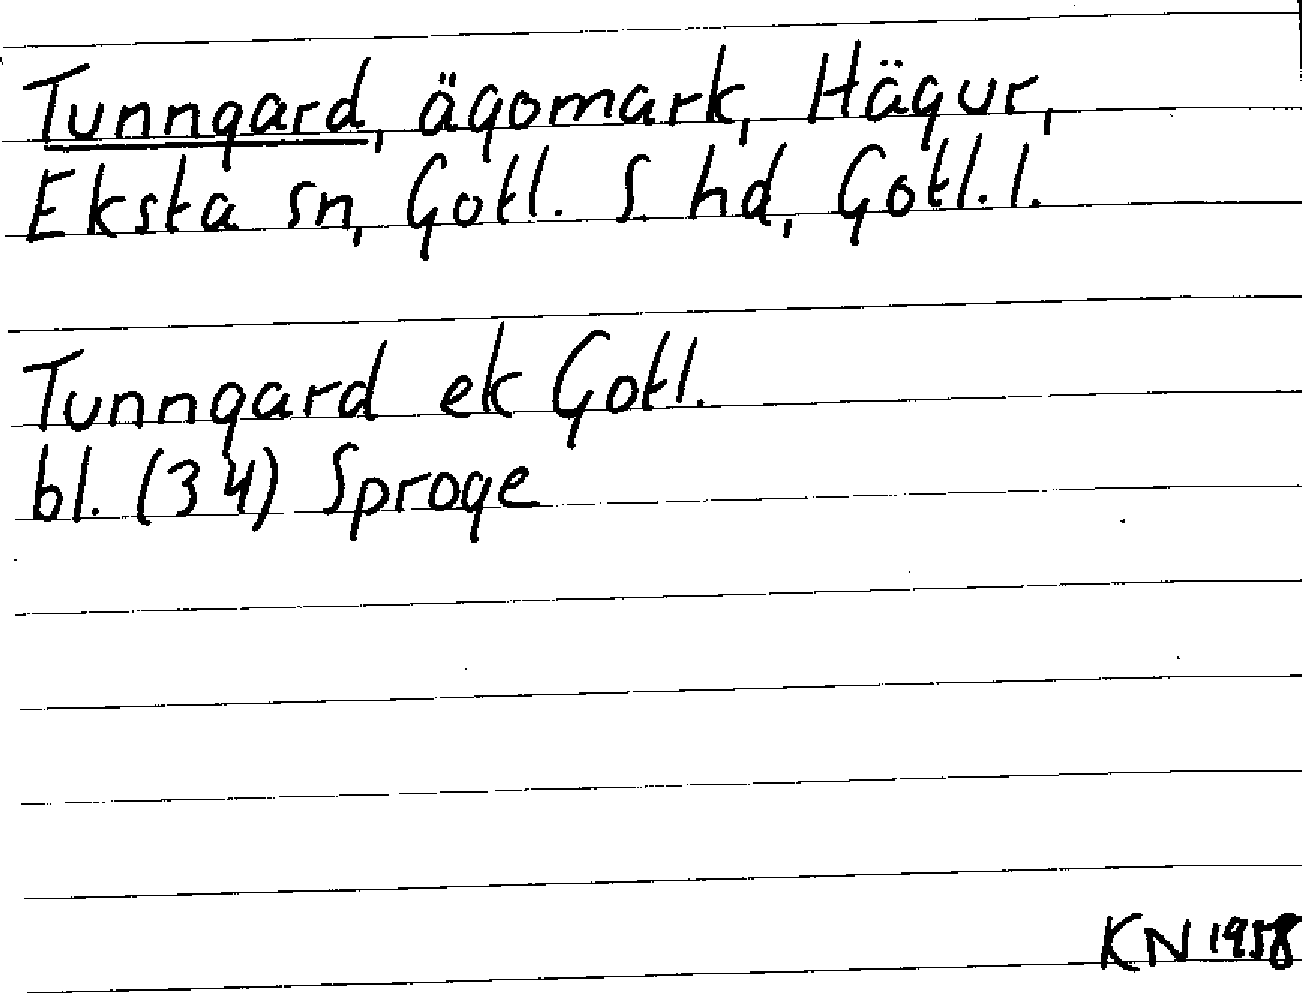 Tunngard, ägomark, Hägur,
Eksta sn, Gotl. S. hd, Gotl. l.
Tunngard ek Gotl.
bl. (34) Sproge
KN 1958